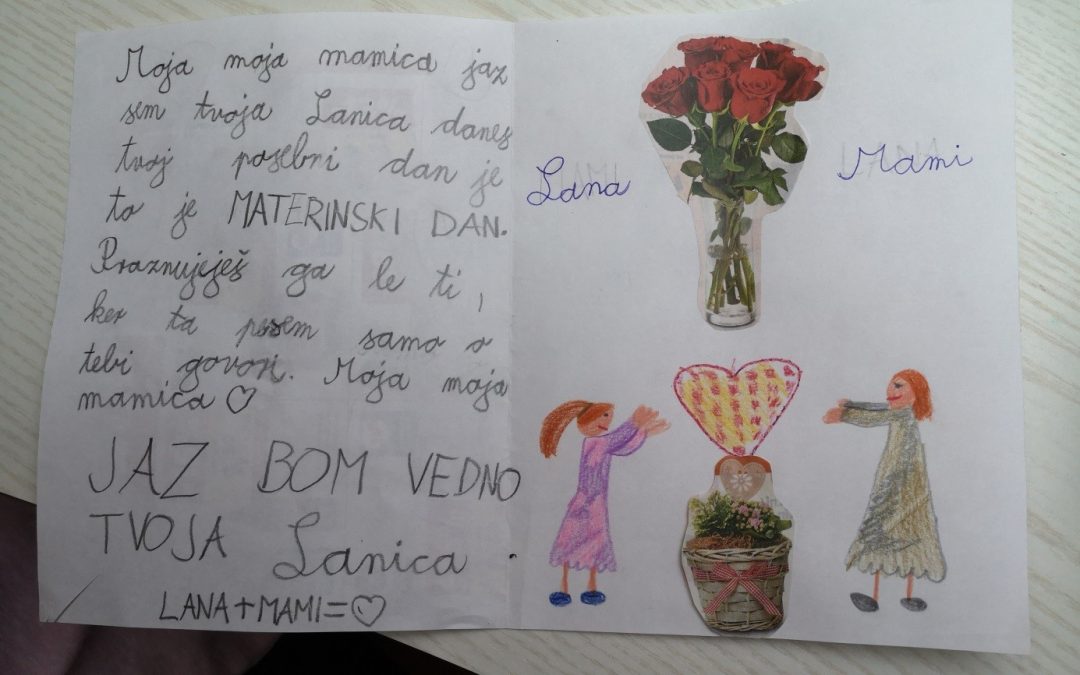 Moja moja mamica jaz
sem tvoja Lanica danes
tvoj posebni dan je
to je MATERINSKI DAN.
Praznuješ ga le ti,
ker ta pesem samo o
tebi govori. Moja moja
mamica ♡
JAZ BOM VEDNO
TVOJA Lanica.
LANA+MAMI=♡
Lana
Mami